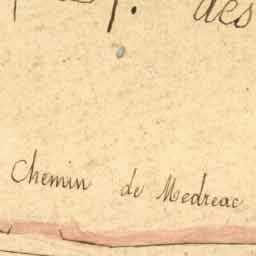 des
Chemin de Medreac